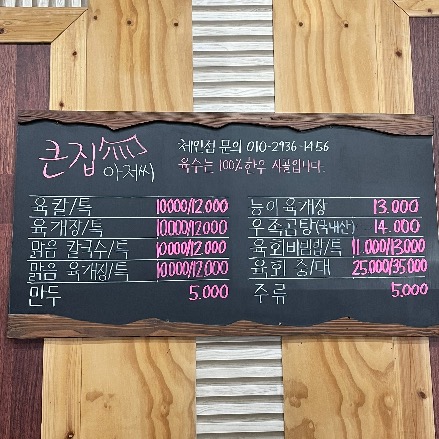 큰집
아저씨
체인점 문의 010-2936-1456
육수는 100% 한우 사골입니다.
육칼/특 10000/12.000
육개장/특 10000/12.000
맑음 칼국수/특 10000/12.000
맑음 육개장/특 10000/12.000
만두 5.000
능이육개장 13.000
우족곰탕(국내산) 14.000
육회비빔밥/특 11.000/13.000
육회 중/대 25.000/35.000
주류 5.000